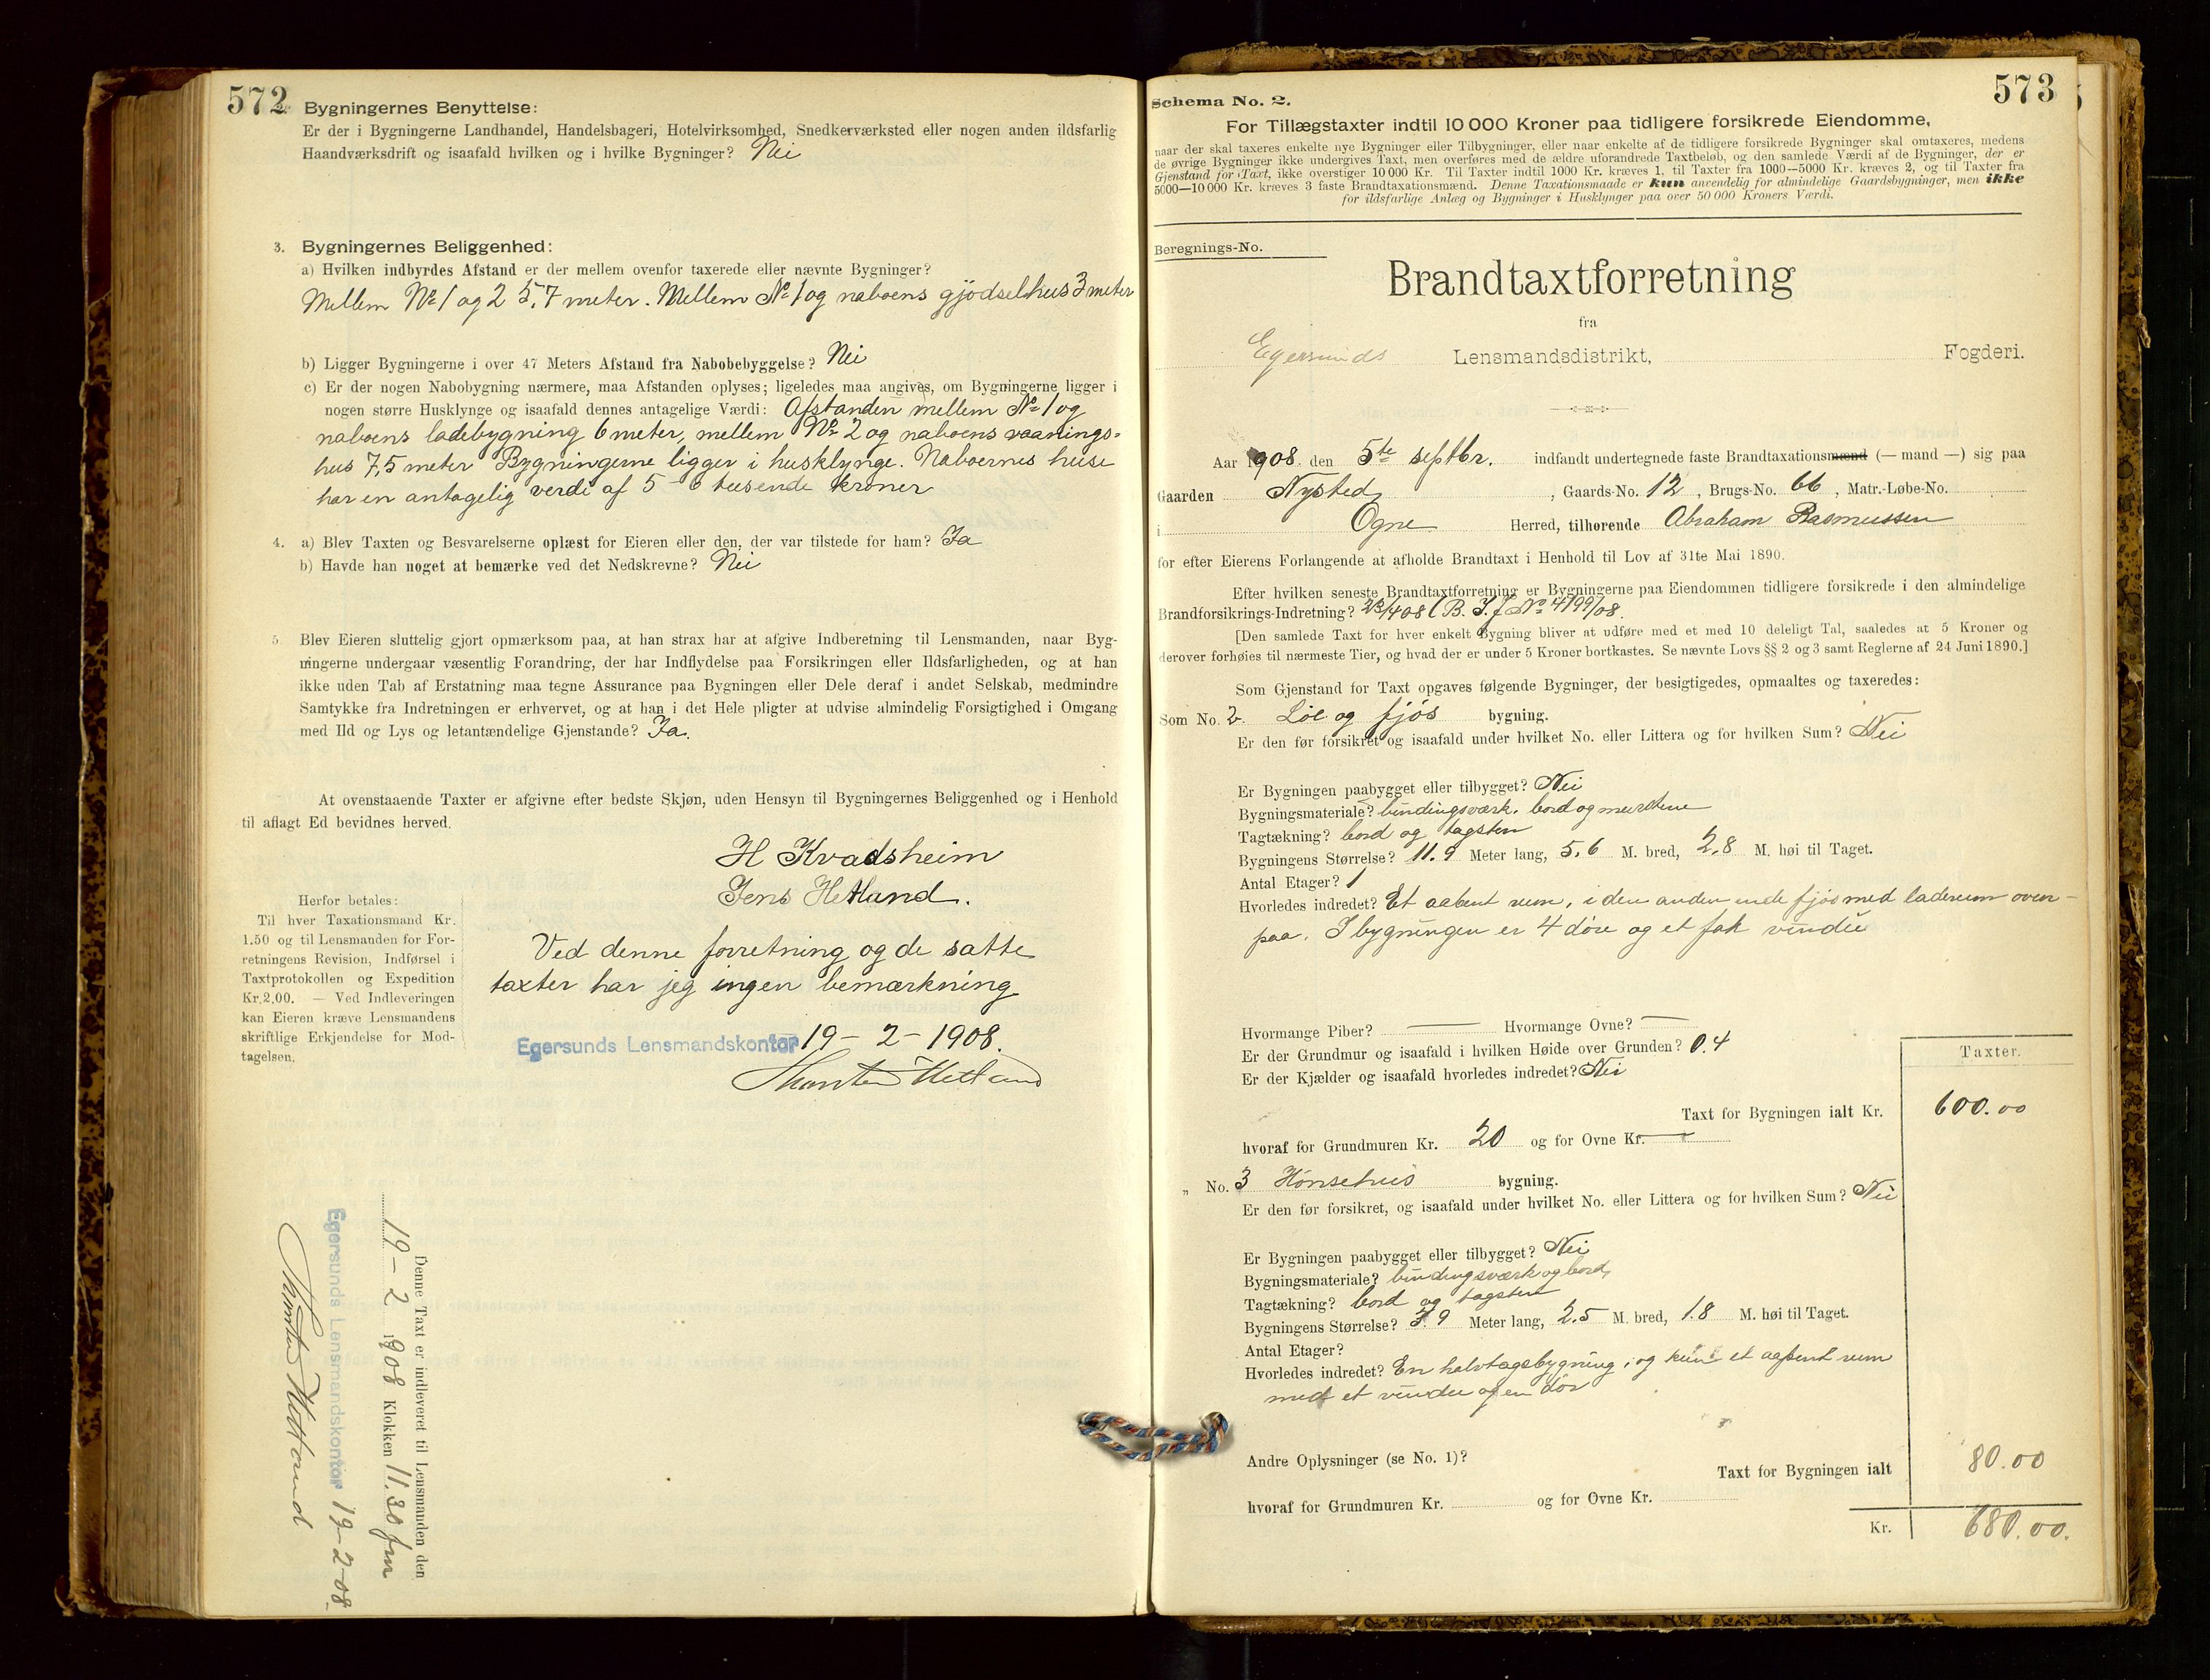 572
Bygningernes Benyttelse:
Er der i Bygningerne Landhandel, Handelsbageri, Hotelvirksomhed, Snedkerværksted eller nogen anden ildsfarlig
Haandværksdrift og isaafald hvilken og i hvilke Bygninger? Nei
3. Bygningernes Beliggenhed:
a) Hvilken indbyrdes Afstand er der mellem ovenfor taxerede eller nævnte Bygninger?
Mellem No 1 og 2 5,7 meter. Mellem No 1 og naboens gjödselhus 3 meter
b) Ligger Bygningerne i over 47 Meters Afstand fra Nabobebyggelse? Nei
c) Er der nogen Nabobygning nærmere, maa Afstanden oplyses; ligeledes maa angives, om Bygningerne ligger i
nogen større Husklynge og isaafald dennes antagelige Værdi: Afstanden mellem No 1 og
naboens ladebygning 6 meter, mellem No 2 og naboens vaanings=
hus 7,5 meter Bygningerne ligger i husklynge. Naboernes huse
har en antagelig verdi af 5 - 6 tusende kroner
4. a) Blev Taxten og Besvarelserne oplæst for Eieren eller den, der var tilstede for ham? Ja
b) Havde han noget at bemærke ved det Nedskrevne? Nei
5. Blev Eieren sluttelig gjort opmærksom paa, at han strax har at afgive Indberetning til Lensmanden, naar Byg-
ningerne undergaar væsentlig Forandring, der har Indflydelse paa Forsikringen eller Ildsfarligheden, og at han
ikke uden Tab af Erstatning maa tegne Assurance paa Bygningen eller Dele deraf i andet Selskab, medmindre
Samtykke fra Indretningen er erhvervet, og at han i det Hele pligter at udvise almindelig Forsigtighed i Omgang
med Ild og Lys og letantændelige Gjenstande? Ja.
At ovenstaaende Taxter er afgivne efter bedste Skjøn, uden Hensyn til Bygningernes Beliggenhed og i Henhold
til aflagt Ed bevidnes herved.
H Kvadsheim
Jens Hetland.
Herfor betales:
Til hver Taxationsmand Kr.
1.50 og til Lensmanden for For-
retningens Revision, Indførsel i
Taxtprotokollen og Expedition
Kr. 2,00. — Ved Indleveringen
kan Eieren kræve Lensmandens
skriftlige Erkjendelse for Mod-
tagelsen.
Ved denne forretning og de satte
taxter har jeg ingen bemærkning
Egersunds Lensmandskontor 19 - 2 - 1908.
Thorsten Hetland
Denne Taxt er indleveret til Lensmanden den
19 - 2 1908 Klokken 11.30 fm
Egersunds Lensmandskontor 19-2-08.
Thorsten Hetland
573
Schema No. 2.
For Tillægstaxter indtil 10 000 Kroner paa tidligere forsikrede Eiendomme,
naar der skal taxeres enkelte nye Bygninger eller Tilbygninger, eller naar enkelte af de tidligere forsikrede Bygninger skal omtaxeres, medens
de øvrige Bygninger ikke undergives Taxt, men overføres med de ældre uforandrede Taxtbeløb, og den samlede Værdi af de Bygninger, der er
Gjenstand for Taxt, ikke overstiger 10 000 Kr. Til Taxter indtil 1000 Kr. kræves 1, til Taxter fra 1000—5000 Kr. kræves 2, og til Taxter fra
5000—10 000 Kr. kræves 3 faste Brandtaxationsmænd. Denne Taxationsmaade er kun anvendelig for almindelige Gaardsbygninger, men ikke
for ildsfarlige Anlæg og Bygninger i Husklynger paa over 50 000 Kroners Værdi.
Beregnings-No.
Brandtaxtforretning
fra
Egersunds Lensmandsdistrikt, Fogderi.
Aar 1908 den 5te septbr. indfandt undertegnede faste Brandtaxationsmænd (— mand —) sig paa
Gaarden Nysted, Gaards-No. 12, Brugs-No. 66, Matr.-Løbe-No.
i Ogne Herred, tilhørende Abraham Rasmussen
for efter Eierens Forlangende at afholde Brandtaxt i Henhold til Lov af 31te Mai 1890.
Efter hvilken seneste Brandtaxtforretning er Bygningerne paa Eiendommen tidligere forsikrede i den almindelige
Brandforsikrings-Indretning? 23/4 08 (B. I. J No 4199/08.
[Den samlede Taxt for hver enkelt Bygning bliver at udføre med et med 10 deleligt Tal, saaledes at 5 Kroner og
derover forhøies til nærmeste Tier, og hvad der er under 5 Kroner bortkastes. Se nævnte Lovs §§ 2 og 3 samt Reglerne af 24 Juni 1890.]
Som Gjenstand for Taxt opgaves følgende Bygninger, der besigtigedes, opmaaltes og taxeredes:
Som No. 2. Löe og fjös bygning.
Er den før forsikret og isaafald under hvilket No. eller Littera og for hvilken Sum? Nei
Er Bygningen paabygget eller tilbygget? Nei
Bygningsmateriale? bindingsværk. bord og murstene
Tagtækning? bord og tagsten
Bygningens Størrelse? 11.9 Meter lang, 5,6 M. bred, 2,8 M. høi til Taget.
Antal Etager? 1
Hvorledes indredet? Et aabent rum, i den anden ende fjös med laderum oven-
paa. I bygningen er 4 döre og et fak vindu
Hvormange Piber? — Hvormange Ovne? —
Er der Grundmur og isaafald i hvilken Høide over Grunden? 0.4
Er der Kjælder og isaafald hvorledes indredet? Nei
Taxter.
Taxt for Bygningen ialt Kr. 600.00
hvoraf for Grundmuren Kr. 20 og for Ovne Kr. —
„ No. 3 Hönsehus bygning.
Er den før forsikret, og isaafald under hvilket No. eller Littera og for hvilken Sum? Nei
Er Bygningen paabygget eller tilbygget? Nei
Bygningsmateriale? bindingsværk og bord,
Tagtækning? bord og tagsten
Bygningens Størrelse? 3.9 Meter lang, 2.5 M. bred, 1.8 M. høi til Taget.
Antal Etager?
Hvorledes indredet? En halvtagsbygning, og kun et aabent rum
med et vindu og en dör
Andre Oplysninger (se No. 1)?
Taxt for Bygningen ialt 80.00
hvoraf for Grundmuren Kr. og for Ovne Kr.
Kr. 680.00.